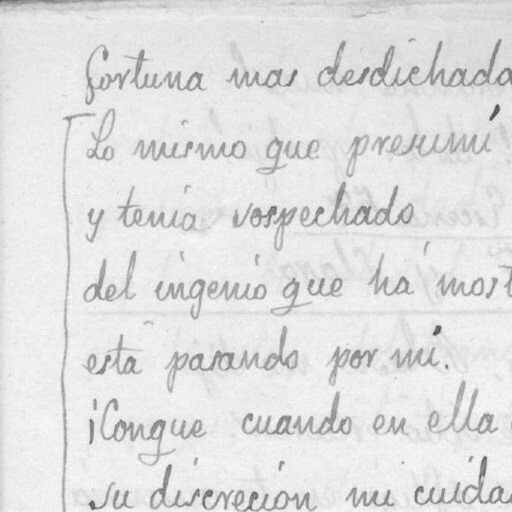 fortuna mas desdichada
Lo mismo que presumí
y tenia sospechado
del ingenio que há most
está pasando por mí.
¡Conque cuando en ella
su discreción mi cuida